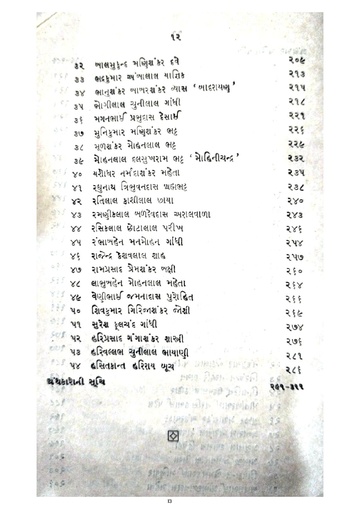 ૧૨
૩૨ બાલમુકુન્દ મણિશંકર દવે ૨૦૯
૩૩ ભદ્રકુમાર અંબાલાલ યાજ્ઞિક ૨૧૩
૩૪ ભાનુશંકર બાબરશંકર વ્યાસ 'બાદરાયણ' ૨૧૫
૩૫ ભોગીલાલ ચુનીલાલ ગાંધી ૨૧૮
૩૬ મગનભાઈ પ્રભુદાસ દેસાઈ ૨૨૧
૩૭ મુનિકુમાર મણિશંકર ભટ્ટ ૨૨૬
૩૮ મૂળશંકર મોહનલાલ ભટ્ટ ૨૨૯
૩૯ મોહનલાલ દલસુખરામ ભટ્ટ 'મોહિનીચન્દ્ર' ૨૩૨
૪૦ યશોધર નર્મદાશંકર મહેતા ૨૩૫
૪૧ રઘુનાથ ત્રિભુવનદાસ બ્રહ્મભટ્ટ ૨૩૮
૪૨ રતિલાલ કાશીલાલ છાયા ૨૪૦
૪૩ રમણીકલાલ બળદેવદાસ અરાલવાળા ૨૪૩
૪૪ રસિકલાલ છોટાલાલ પરીખ ૨૪૬
૪૫ રંભાબહેન મનમોહન ગાંધી ૨૫૪
૪૬ રાજેન્દ્ર કેશવલાલ શાહ ૨૫૭
૪૭ રામપ્રસાદ પ્રેમશંકર બક્ષી ૨૬૦
૪૮ લાભુબહેન મોહનલાલ મહેતા ૨૬૪
૪૯ વેણીભાઈ જમનાદાસ પુરોહિત ૨૬૬
૫૦ શિવકુમાર ગિરિજાશંકર જોશી ૨૬૯
૫૧ સુરેશ ફૂલચંદ ગાંધી ૨૭૪
૫૨ હરિપ્રસાદ ગંગાશંકર શાસ્ત્રી ૨૭૬
૫૩ હરિવલ્લભ ચુનીલાલ ભાયાણી ૨૮૧
૫૪ હસિતકાન્ત હરિરાય બૂચ ૨૮૬
ગ્રંથકારોની સૂચિ ૨૯૧-૩૧૧